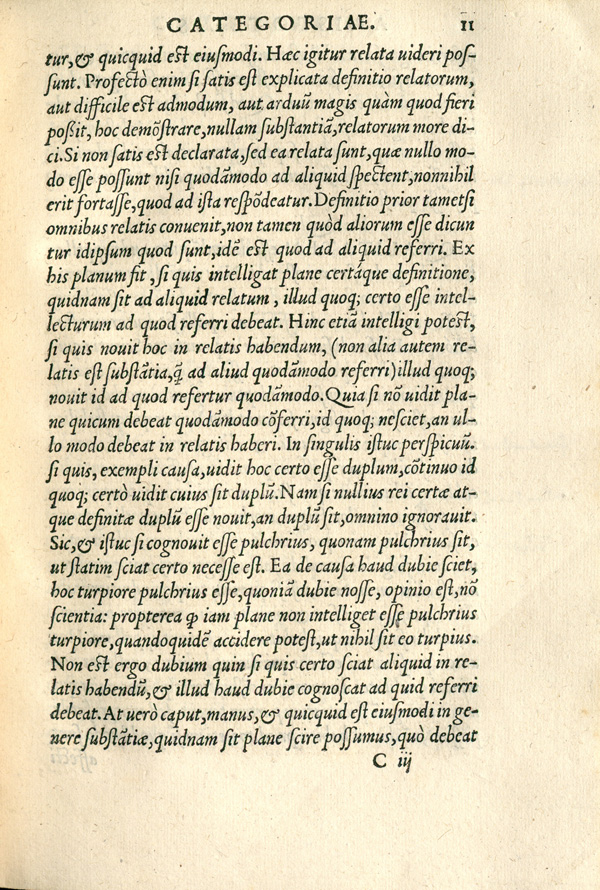 CATEGORIAE. 11
tur,& quicquid est eiusmodi. Hæc igitur relata uideri pos-
sunt. Profectò enim si satis est explicata definitio relatorum,
aut difficile est admodum, aut arduũ magis quàm quod fieri
poßit, hoc demõstrare, nullam substantiã, relatorum more di-
ci. Si non satis est declarata, sed ea relata sunt, quæ nullo mo-
do esse possunt nisi quodãmodo ad aliquid spectent, nonnihil
erit fortasse, quod ad ista respõdeatur. Definitio prior tametsi
omnibus relatis conuenit, non tamen quòd aliorum esse dicun
tur idipsum quod sunt, idẽ est quod ad aliquid referri. Ex
his planum fit, si quis intelligat plane certáque definitione,
quidnam sit ad aliquid relatum, illud quoq; certo esse intel-
lecturum ad quod referri debeat. Hinc etiã intelligi potest,
si quis nouit hoc in relatis habendum, (non alia autem re-
latis est substãtia, q̃ ad aliud quodãmodo referri) illud quoq;
nouit id ad quod refertur quodãmodo. Quia si nõ uidit pla-
ne quicum debeat quodãmodo cõferri, id quoq; nesciet, an ul-
lo modo debeat in relatis haberi. In singulis istuc perspicuũ.
si quis, exempli causa, uidit hoc certo esse duplum, cõtinuo id
quoq; certò uidit cuius sit duplũ. Nam si nullius rei certæ at-
que definitæ duplũ esse nouit, an duplũ sit, omnino ignorauit.
Sic, & istuc si cognouit esse pulchrius, quonam pulchrius sit,
ut statim sciat certo necesse est. Ea de causa haud dubie sciet,
hoc turpiore pulchrius esse, quoniã dubie nosse, opinio est, nõ
scientia: propterea ꝙ iam plane non intelliget esse pulchrius
turpiore, quandoquidẽ accidere potest, ut nihil sit eo turpius.
Non est ergo dubium quin si quis certo sciat aliquid in re-
latis habendũ, & illud haud dubie cognoscat ad quid referri
debeat. At uerò caput, manus, & quicquid est eiusmodi in ge-
nere substãtiæ, quidnam sit plane scire possumus, quò debeat
C iij